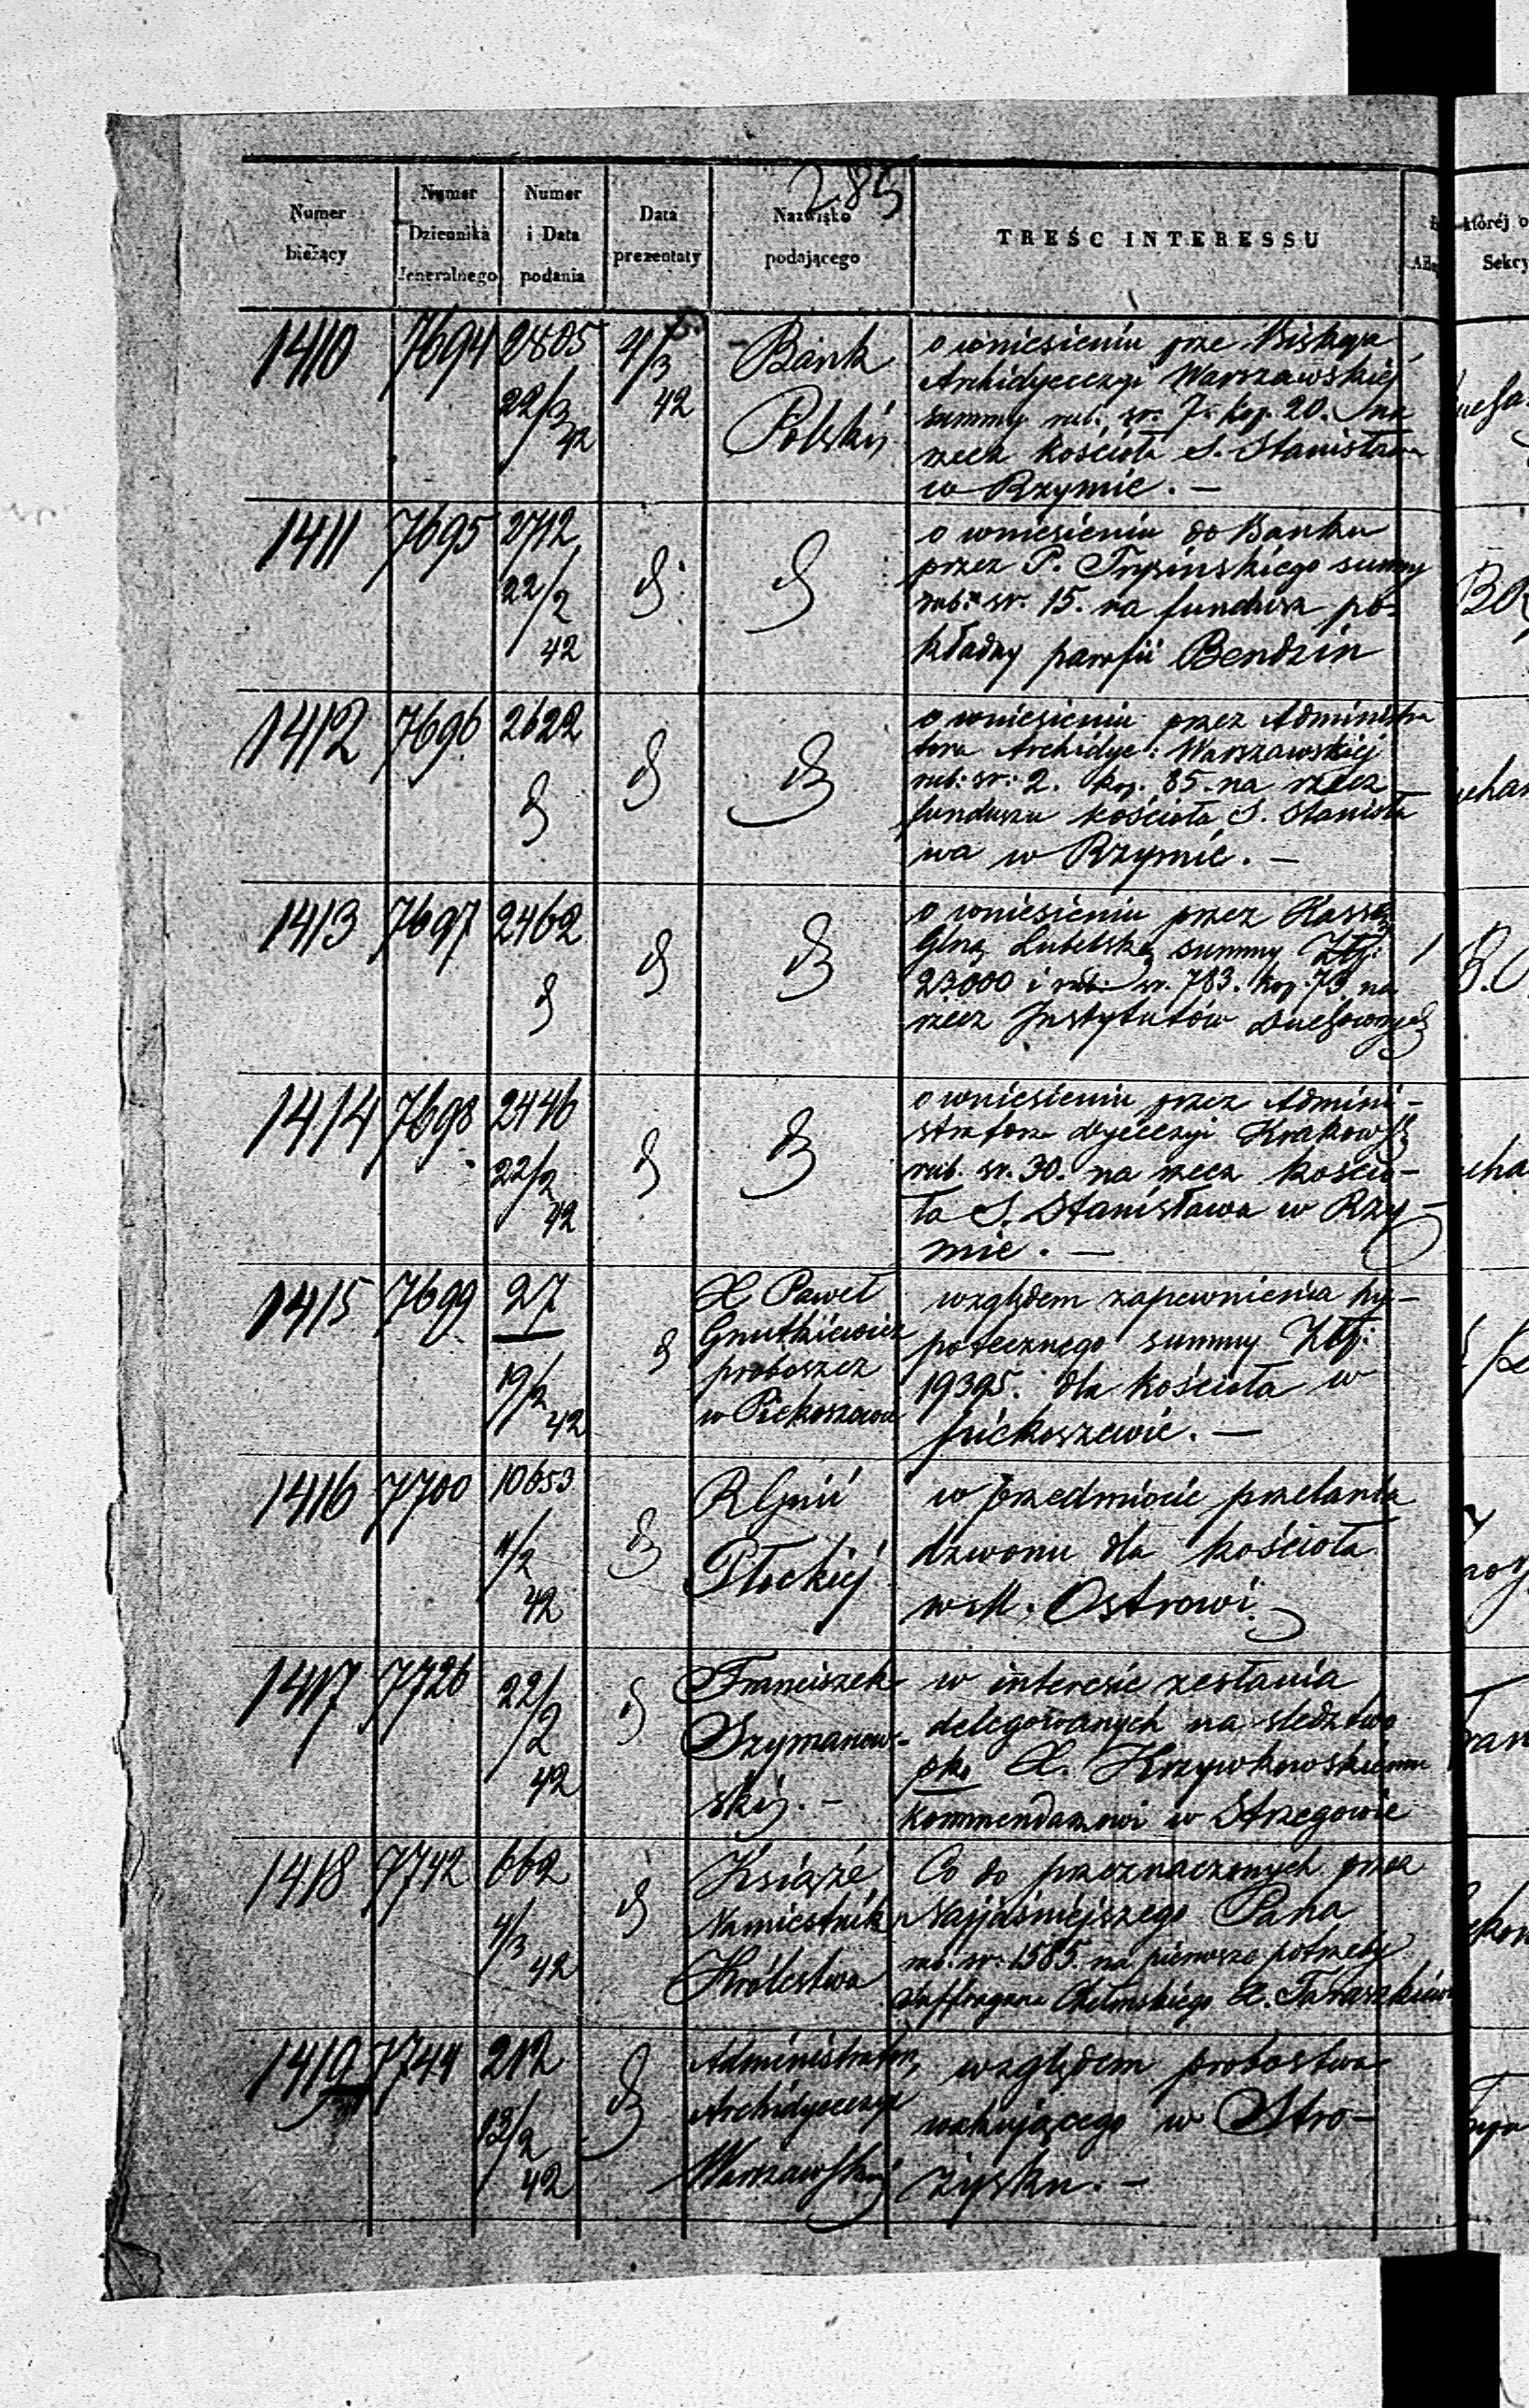 285
Numer bieżący
Numer Dziennika Jeneralnego
Numer i Data podania
Data prezentaty
Nazwisko podającego
TREŚĆ INTERESSU
której o
Sekcy
1410 7694 2805 22/3 42
4/3 42
Bank
Polski
o wniesieniu prze Biskupa
Archidyecezyi Warszawskiej
summy rub. sr. 7. kop. 20. na
rzecz kościoła S. Stanisława
w Rzymie. —
1411 7695 2712 22/2 42
o wniesieniu do Banku
przez P. Trysińskiego summy
rub. sr. 15. na fundusz po-
kładny parafii Bendzin
1412 7696 2622
o wniesieniu przez Administra
tora Archidye: Warszawskiej
rub: sr: 2. kop. 85. na rzecz
funduszu kościoła S. Stanisła
wa w Rzymie. —
1413 7697 2462
o wniesieniu przez Kassę
Glną Lubelską summy Złtp:
23000 i rub: sr. 783. kop. 73 na
rzecz Instytutów Duchownych
1414 7698 2446 22/2 42
o wniesieniu przez Admini-
stratora dyecezyi Krakows
rub. sr. 30. na rzecz kościo-
ła S. Stanisława w Rzy-
mie. —
1415 7699 27 19/2 42
X Paweł
Gnutkiewicz
proboszcz
w Piekoszowie
względem zapewnienia hy-
potecznego summy Złtp:
19395. dla kościoła w
Piekoszewie. —
1416 7700 10653 11/2 42
R Gnii
Płockiej
w przedmiocie przelania
dzwonu dla kościoła
w M. Ostrowi
1417 7726 22/2 42
Franciszek
Szymanow-
ski. —
w interesie zesłania
delegowanych na śledztwo
pko X. Krzywkowskiemu
kommendarzowi w Strzegowie
1418 7742 662 4/3 42
Książe
Namiestnik
Królestwa
Co do przeznaczonych przez
Najjaśniejszego Pana
rub: sr: 1585. na pierwsze potrzeby
Suffragana Chełmskiego X. Taraszkiew
1419 7744 212 13/2 42
Administrator
Archidyecezyi
Warszawskiej
względem probostwa
wakującego w Stro-
żysku. —